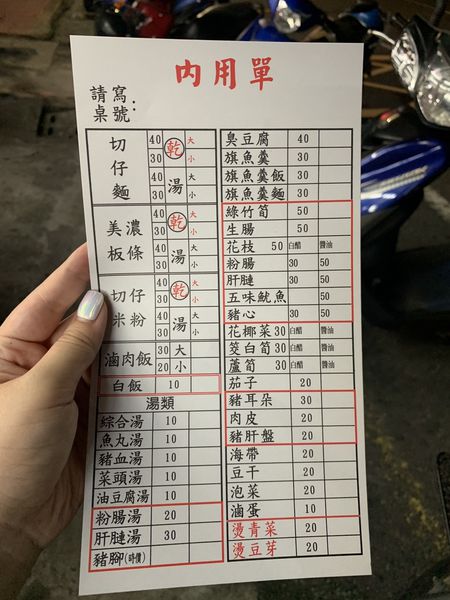 內用單
請寫
桌號：
切仔麵 40 乾 大
30 小
40 湯 大
30 小
美濃板條 40 乾 大
30 小
40 湯 大
30 小
切仔米粉 40 乾 大
30 小
40 湯 大
30 小
滷肉飯 30 大
20 小
白飯 10
湯類
綜合湯 10
魚丸湯 10
豬血湯 10
菜頭湯 10
油豆腐湯 10
粉腸湯 20
肝膁湯 30
豬腳(時價)
臭豆腐 40
旗魚羹 30
旗魚羹飯 30
旗魚羹麵 30
綠竹筍 50
生腸 50
花枝 50 白醋 醬油
粉腸 30 50
肝膁 30 50
五味魷魚 50
豬心 30 50
花椰菜 30 白醋 醬油
筊白筍 30 白醋 醬油
蘆筍 30 白醋 醬油
茄子 20
豬耳朵 30
肉皮 20
豬肝盤 20
海帶 20
豆干 20
泡菜 20
滷蛋 10
燙青菜 20
燙豆芽 20